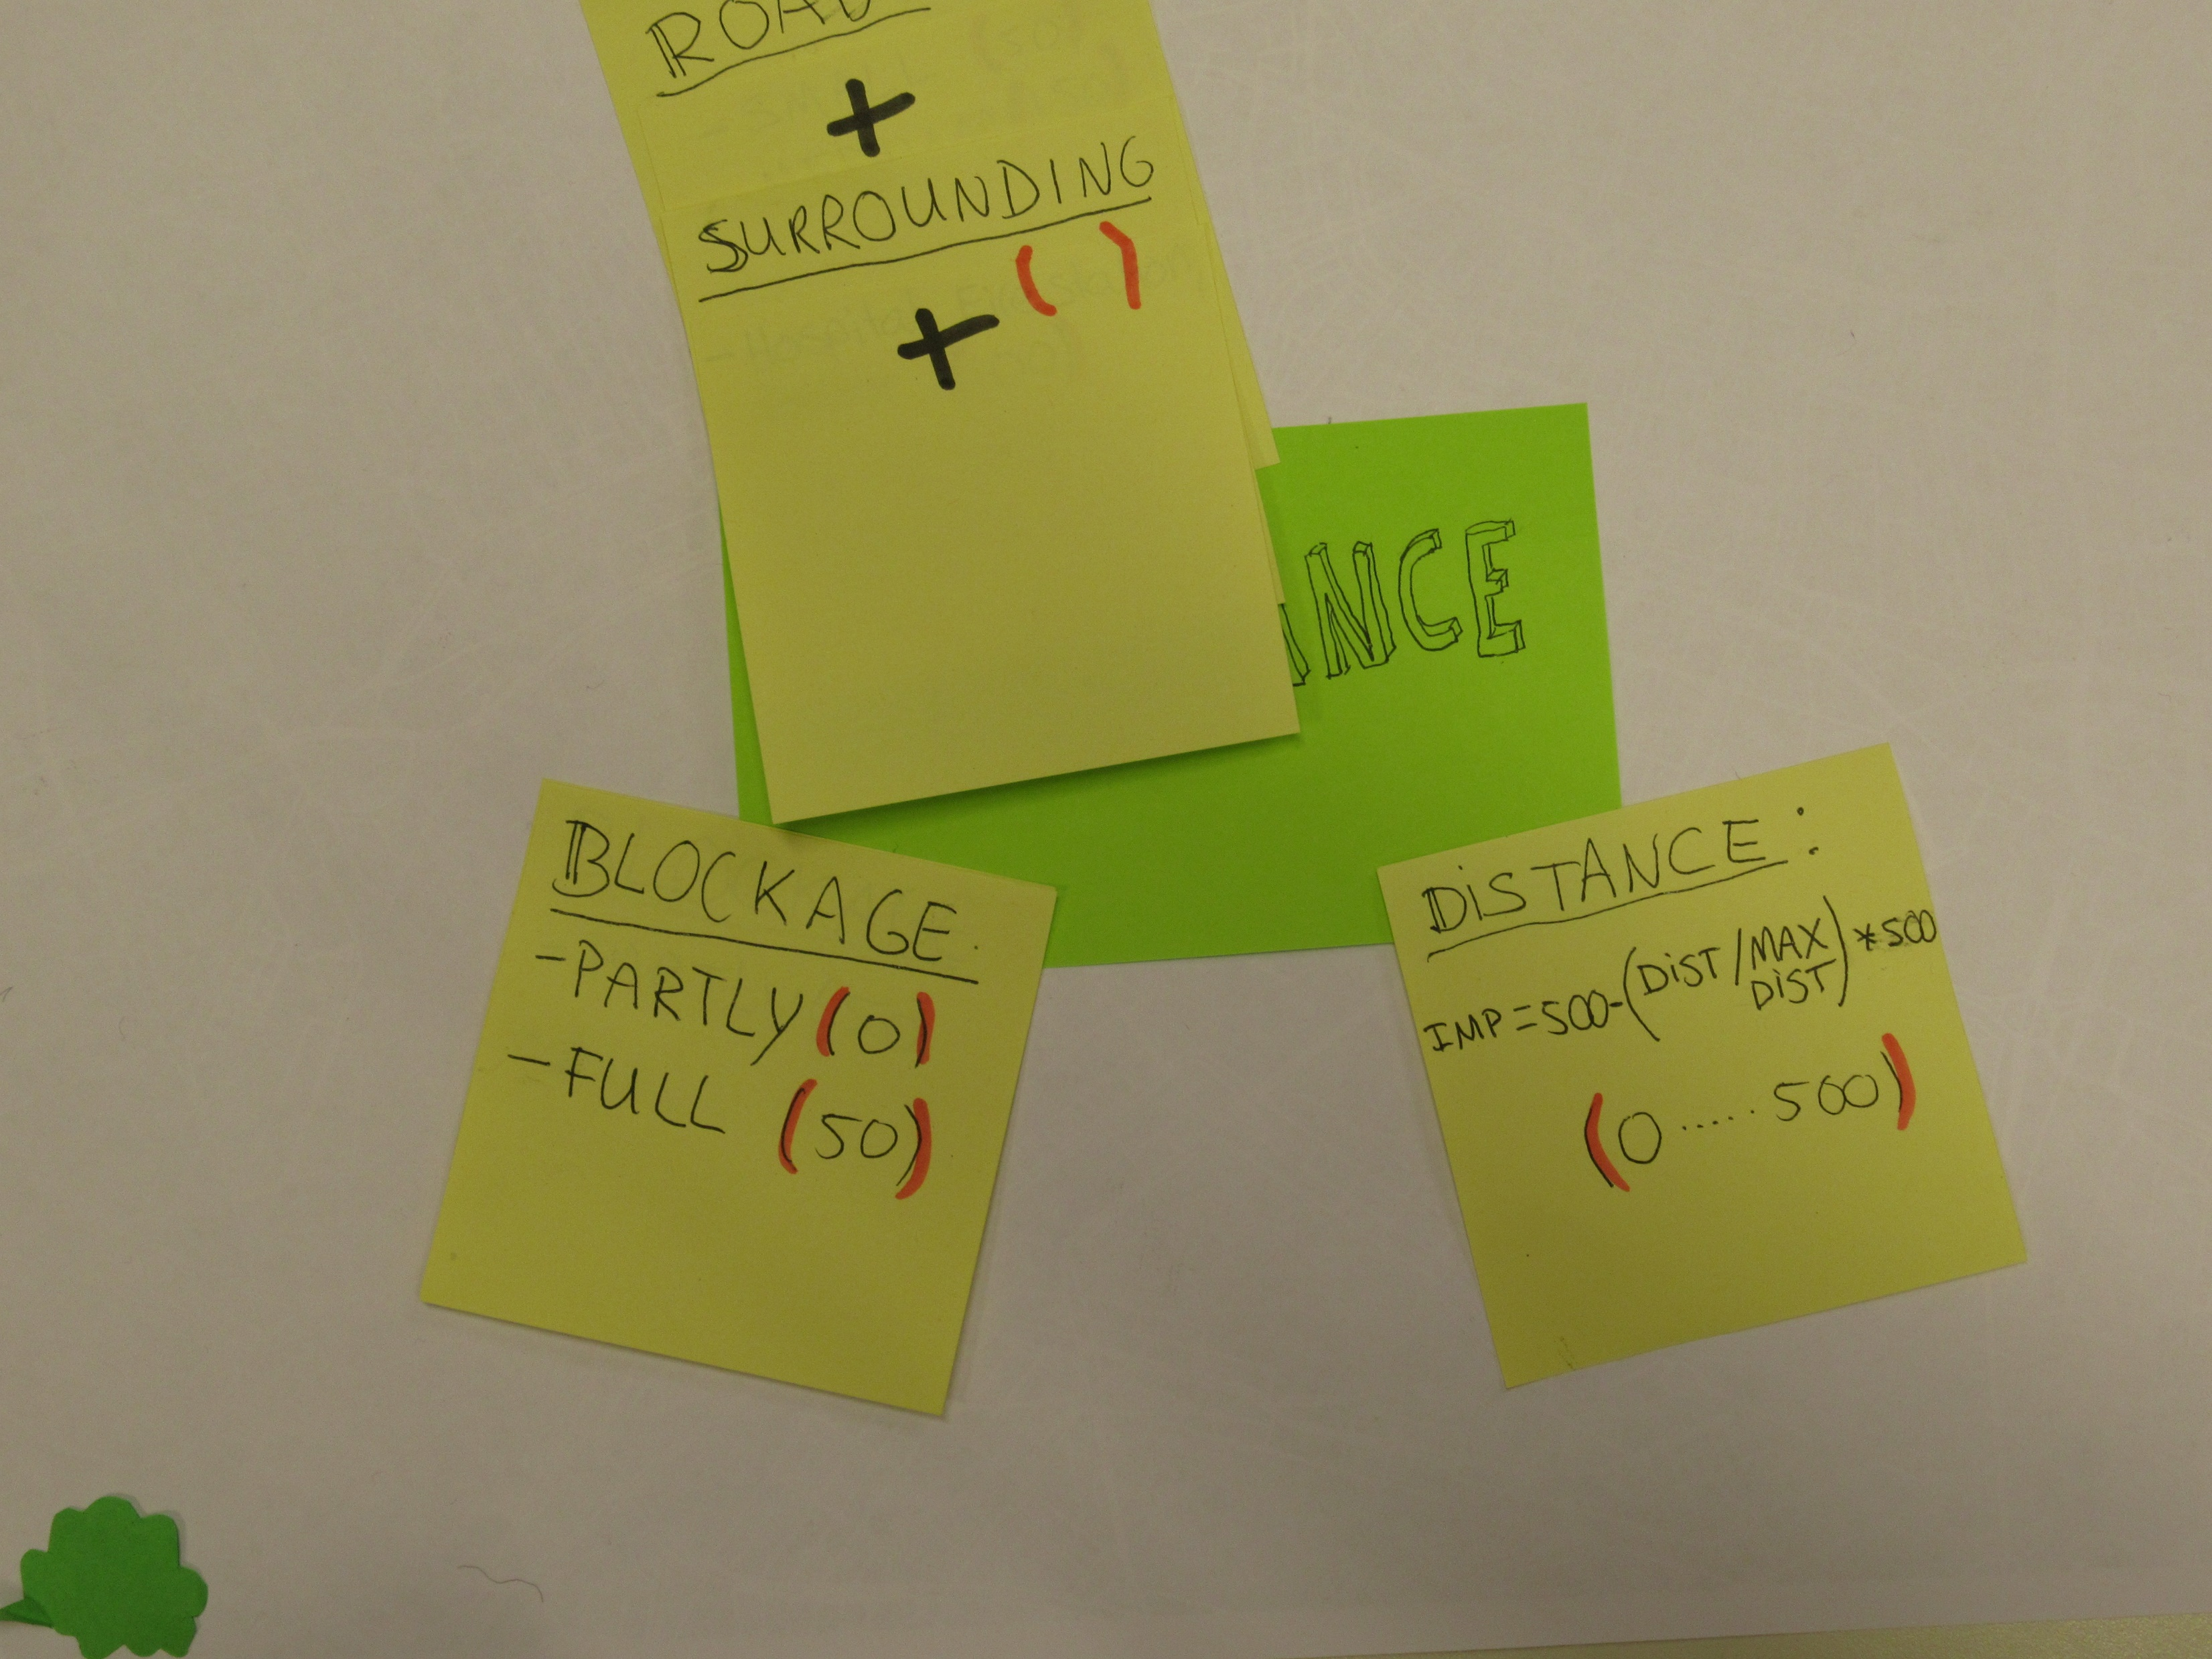 ROAD
+
SURROUNDING
( )
+
ANCE
BLOCKAGE.
-PARTLY (0)
-FULL (50)
DISTANCE:
IMP=500-(DIST/MAX DIST)*500
(0.....500)